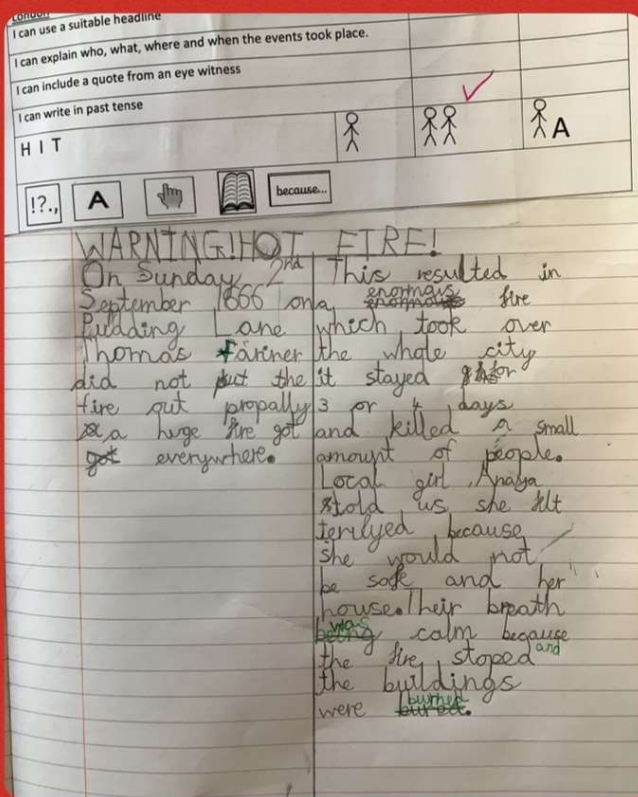 London
I can use a suitable headline
I can explain who, what, where and when the events took place.
I can include a quote from an eye witness
I can write in past tense
H I T
A
!?.,
A
because...
WARNING!HOT FIRE!
On Sunday 2nd
September 1666 on
Pudding Lane
Thomas fariner
did not put the
fire out propally
a huge fire got
got everywhere.
This resulted in
a enormous fire
enormous
which took over
the whole city
it stayed for
3 or 4 days
and killed a small
amount of people.
Local girl, Anaya
told us she felt
terifyed because
she would not
be safe and her
house. Their breath
was
being calm because
the fire stoped and
the buildings
burned
were